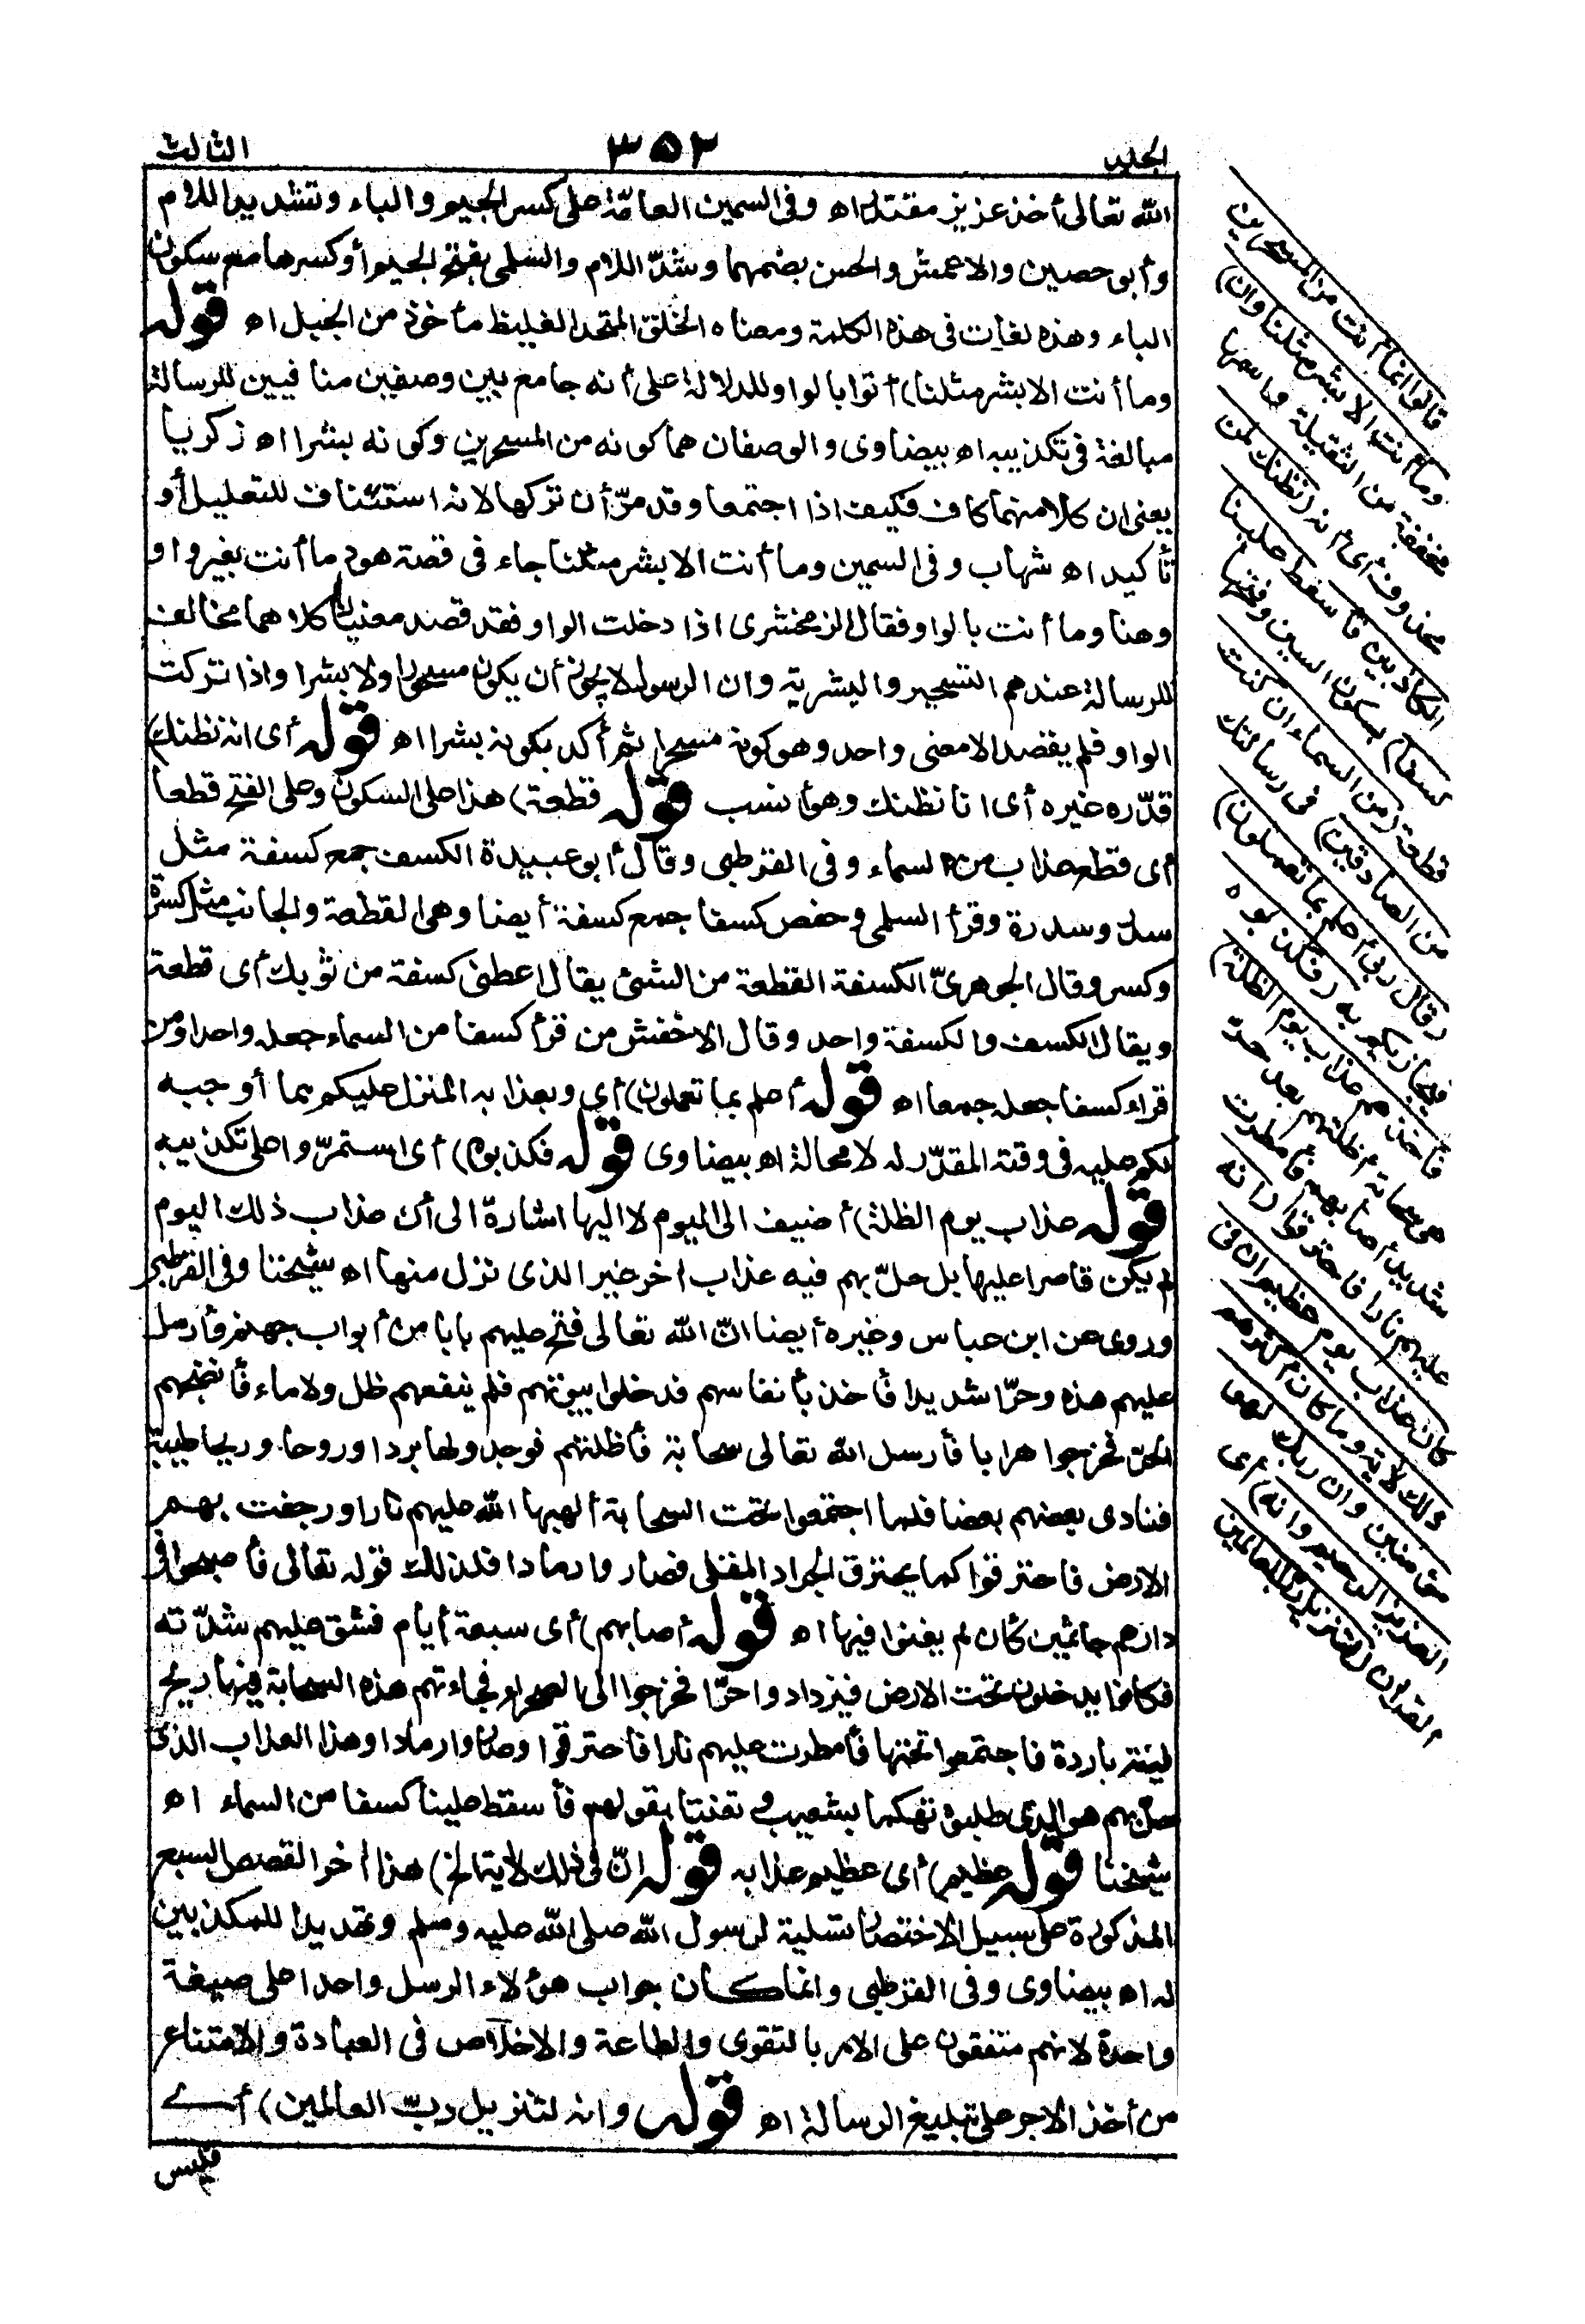 الجلد
٣٥٢
الثالث
الله تعالى أخذ عزيز مقتدر اه وفى السمين العامّة على كسر الجيم والباء وتشديد اللام
وأبى حصين والاعمش والحسن بضمهما وشدّ اللام والسلمى بفتح الجيم أو كسرها مع سكون
الباء وهذه لغات فى هذه الكلمة ومعناه الخلق المتحد الغليظ مأخوذ من الجبل اه قوله
وما أنت الا بشر مثلنا) أتوا بالواو للدلالة على أنه جامع بين وصفين منافيين للرسالة
مبالغة فى تكذيبه اه بيضاوى والوصفان هما كونه من المسحرين وكونه بشرا اه زكريا
يعنى ان كلا منهما كاف فكيف اذا اجتمعا وقد مرّ أن تركها لانه استئناف للتعليل أو
تأكيد اه شهاب وفى السمين وما أنت الا بشر مثلنا جاء فى قصة هود ما أنت بغير واو
وهنا وما أنت بالواو فقال الزمخشرى اذا دخلت الواو فقد قصد معنيان كلاهما مخالف
للرسالة عندهم التسحير والبشرية وان الرسول لا يجوز أن يكون مسحرا ولا بشرا واذا تركت
الواو فلم يقصد الا معنى واحد وهو كونه مسحرا ثم أكد بكونه بشرا اه قوله أى انه نظنك)
قدّره غيره أى انا نظنك وهو أنسب قوله قطعة) هذا على السكون وعلى الفتح قطعا
أى قطع عذاب من السماء وفى القرطبى وقال أبو عبيدة الكسف جمع كسفة مثل
سدر وسدرة وقرأ السلمى وحفص كسفا جمع كسفة أيضا وهى القطعة والجانب مثل كسرة
وكسر وقال الجوهرىّ الكسفة القطعة من الشئ يقال اعطنى كسفة من ثوبك أى قطعة
ويقال الكسف والكسفة واحد وقال الاخفش من قرأ كسفا من السماء جعله واحدا ومن
قرأ كسفا جعله جمعا اه قوله أعلم بما تعملون) أى وبعذابه المنزل عليكم بما أوجبه
لكم عليه فى وقته المقدّر له لا محالة اه بيضاوى قوله فكذبوه) أى استمرّوا على تكذيبه
قوله عذاب يوم الظلة) أضيف الى اليوم لا اليها اشارة الى أن عذاب ذلك اليوم
لم يكن قاصرا عليها بل حلّ بهم فيه عذاب اخر غير الذى نزل منها اه شيخنا وفى القرطبى
وروى عن ابن عباس وغيره أيضا انّ الله تعالى فتح عليهم بابا من أبواب جهنم فأرسل
عليهم هذه وحرّا شديدا فأخذ بأنفاسهم فدخلوا بيوتهم فلم ينفعهم ظل ولا ماء فأنضجهم
الحرّ فخرجوا هرابا فأرسل الله تعالى سحابة فأظلتهم فوجدوا لها بردا وروحا وريحا طيبة
فنادى بعضهم بعضا فلما اجتمعوا تحت السحابة ألهبها الله عليهم نارا ورجفت بهم
الارض فاحترقوا كما يحترق الجراد المقلى فصاروا رمادا فلذلك قوله تعالى فأصبحوا فى
دارهم جاثمين كأن لم يغنوا فيها اه قوله أصابهم) أى سبعة أيام فشق عليهم شدّته
فكانوا يدخلون تحت الارض فيزدادوا حرّا فخرجوا الى الصحراء فجاءتهم هذه السحابة فيها ريح
لينة باردة فاجتمعوا تحتها فأمطرت عليهم نارا فاحترقوا وصاروا رمادا وهذا العذاب الذى
حلّ بهم هو الذى طلبوه تهكما بشعيب وتعنتا بقولهم فأسقط علينا كسفا من السماء اه
شيخنا قوله عظيم) أى عظيم عذابه قوله انّ فى ذلك لاية الخ) هذا أخر القصص السبع
المذكورة على سبيل الاختصار تسلية لرسول الله صلى الله عليه وسلم وتهديدا للمكذبين
له اه بيضاوى وفى القرطبى وانما كان جواب هؤلاء الرسل واحدا على صيغة
واحدة لانهم متفقون على الامر بالتقوى والطاعة والاخلاص فى العبادة والامتناع
من أخذ الاجر على تبليغ الرسالة اه قوله وانه لتنزيل ربّ العالمين) أى
قالوا انما أنت من المسحرين
وما أنت الا بشر مثلنا وان)
مخففة من الثقيلة واسمها
محذوف أى انه (نظنك لمن
الكاذبين فأسقط علينا
كسفا) بسكون السين وفتحها
قطعة (من السماء ان كنت
من الصادقين) فى رسالتك
(قال ربى أعلم بما تعملون)
فيجازيكم به (فكذبوه
فأخذهم عذاب يوم الظلة)
هى سحابة أظلتهم بعد حر
شديد أصابهم فأمطرت
عليهم نارا فاحترقوا (انه
كان عذاب يوم عظيم ان فى
ذلك لاية وما كان أكثرهم
مؤمنين وان ربك لهو
العزيز الرحيم وانه) أى
القرآن (لتنزيل رب العالمين